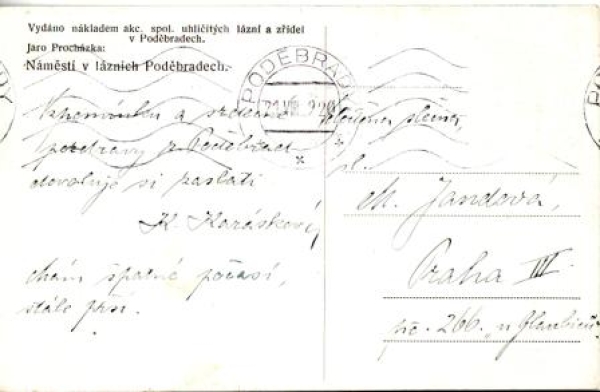 Vydáno nákladem akc. spol. uhličitých lázní a zřídel
v Poděbradech.
Jaro Procházka:
Náměstí v lázních Poděbradech.
PODĚBRADY
Vzpomínku a srdečné
pozdravy z Poděbrad
dovoluje si zaslati
K. Karásková
chám špatné počasí,
stále prší.
sl.
M. Jandová,
Praha III
čp. 266. "u Glaubiců"